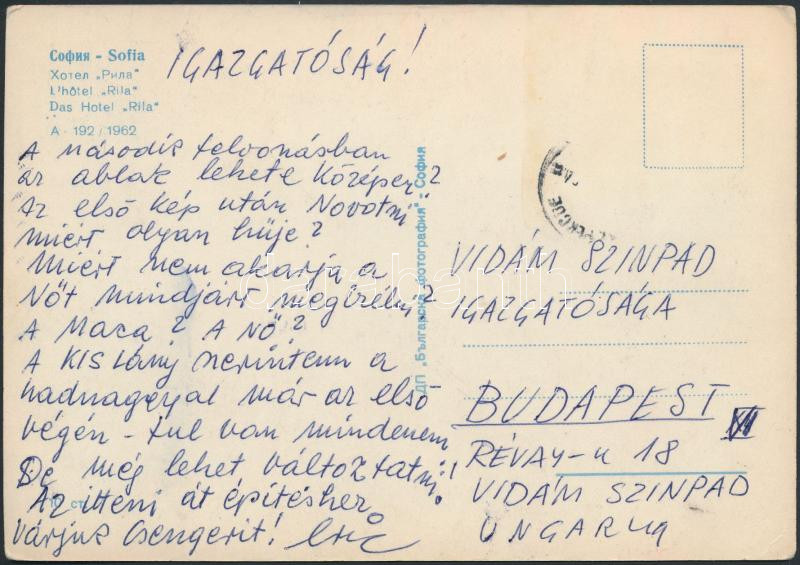 София - Sofia
Хотел „Рила“
L'hôtel „Rila“
Das Hotel „Rila“
А - 192 / 1962
IGAZGATÓSÁG!
A második felvonásban
az ablak lehete középen?
Az első kép után Novotni
miért olyan hüje?
Miért nem akarja a
Nőt mindjárt megízélni?
A Maca? A NŐ?
A KIS Lány szerintem a
hadnaggyal már az első
végén - tul van mindenem
De még lehet változtatni!
Az itteni átépítéshez
várjuk Csengerit!
ДП „Българска фотография“ - София
VIDÁM SZINPAD
IGAZGATÓSÁGA
BUDAPEST VI
RÉVAY-u 18
VIDÁM SZINPAD
UNGARIA
darabanth